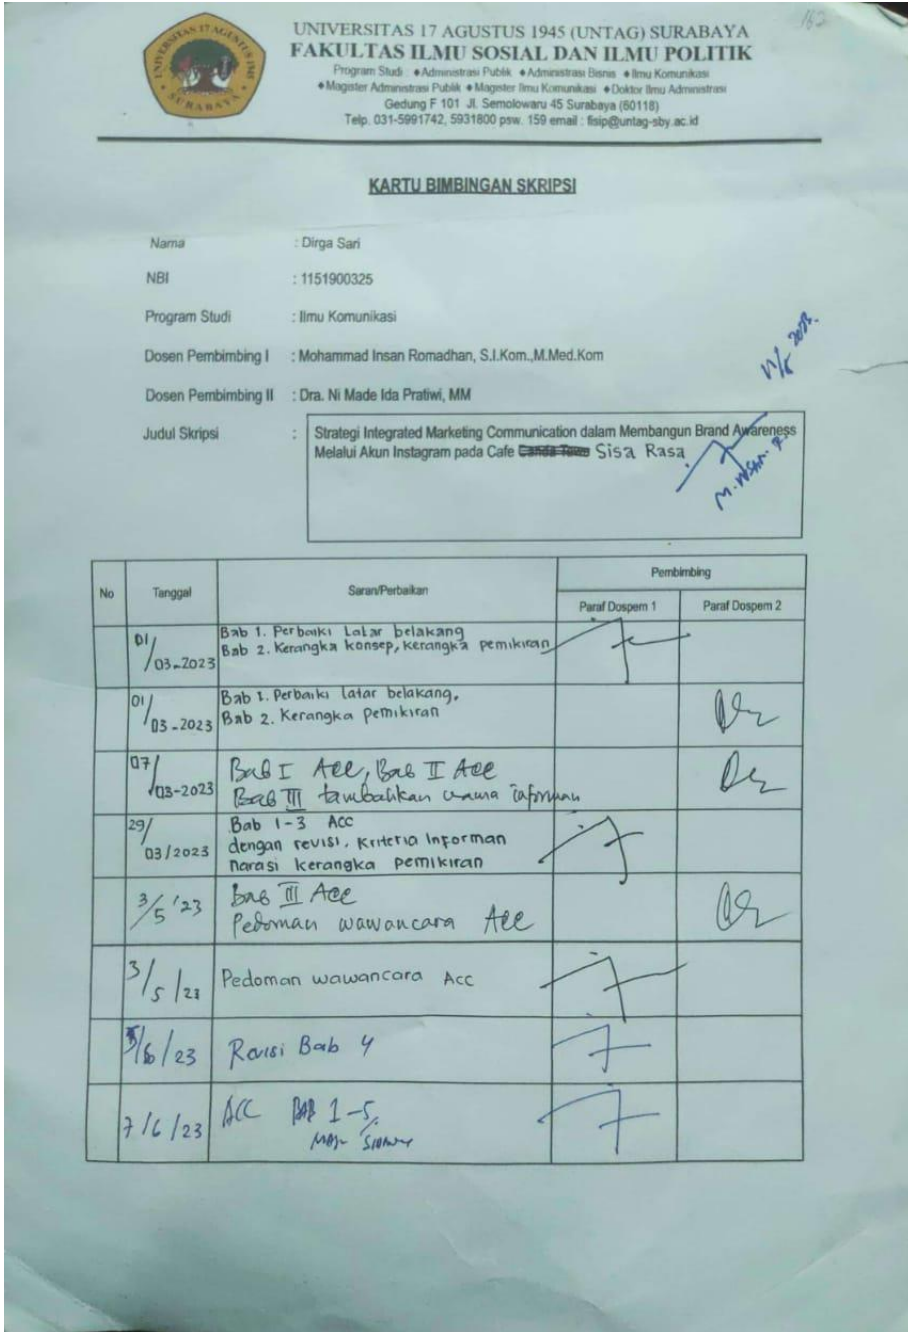 162
UNIVERSITAS 17 AGUSTUS 1945 (UNTAG) SURABAYA
FAKULTAS ILMU SOSIAL DAN ILMU POLITIK
Program Studi : ♦Administrasi Publik ♦Administrasi Bisnis ♦Ilmu Komunikasi
♦Magister Administrasi Publik ♦Magister Ilmu Komunikasi ♦Doktor Ilmu Administrasi
Gedung F 101 Jl. Semolowaru 45 Surabaya (60118)
Telp. 031-5991742, 5931800 psw. 159 email : fisip@untag-sby.ac.id
UNIVERSITAS 17 AGUSTUS 1945
SURABAYA
KARTU BIMBINGAN SKRIPSI
Nama : Dirga Sari
NBI : 1151900325
Program Studi : Ilmu Komunikasi
Dosen Pembimbing I : Mohammad Insan Romadhan, S.I.Kom.,M.Med.Kom
2023.
Dosen Pembimbing II : Dra. Ni Made Ida Pratiwi, MM
Judul Skripsi : Strategi Integrated Marketing Communication dalam Membangun Brand Awareness
Melalui Akun Instagram pada Cafe Sisa Rasa
M. Insan. R.
No Tanggal Saran/Perbaikan Pembimbing
Paraf Dospem 1 Paraf Dospem 2
01/03-2023 Bab 1. Perbaiki Latar belakang
Bab 2. Kerangka konsep, kerangka pemikiran
01/03-2023 Bab 1. Perbaiki latar belakang.
Bab 2. Kerangka pemikiran
07/03-2023 Bab I Acc, Bab II Acc
Bab III tambahkan nama informan
29/03/2023 Bab 1-3 Acc
dengan revisi, Kriteria Informan
narasi kerangka pemikiran
3/5 '23 Bab III Acc
Pedoman wawancara Acc
3/5/23 Pedoman wawancara Acc
5/6/23 Revisi Bab 4
7/6/23 ACC BAB 1-5,